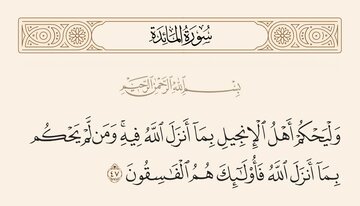 سُورَةُ المَائِدَةِ
بِسْمِ اللَّهِ الرَّحْمَٰنِ الرَّحِيمِ
وَلْيَحْكُمْ أَهْلُ ٱلْإِنجِيلِ بِمَآ أَنزَلَ ٱللَّهُ فِيهِ ۚ وَمَن لَّمْ يَحْكُم
بِمَآ أَنزَلَ ٱللَّهُ فَأُو۟لَـٰٓئِكَ هُمُ ٱلْفَـٰسِقُونَ ٤٧